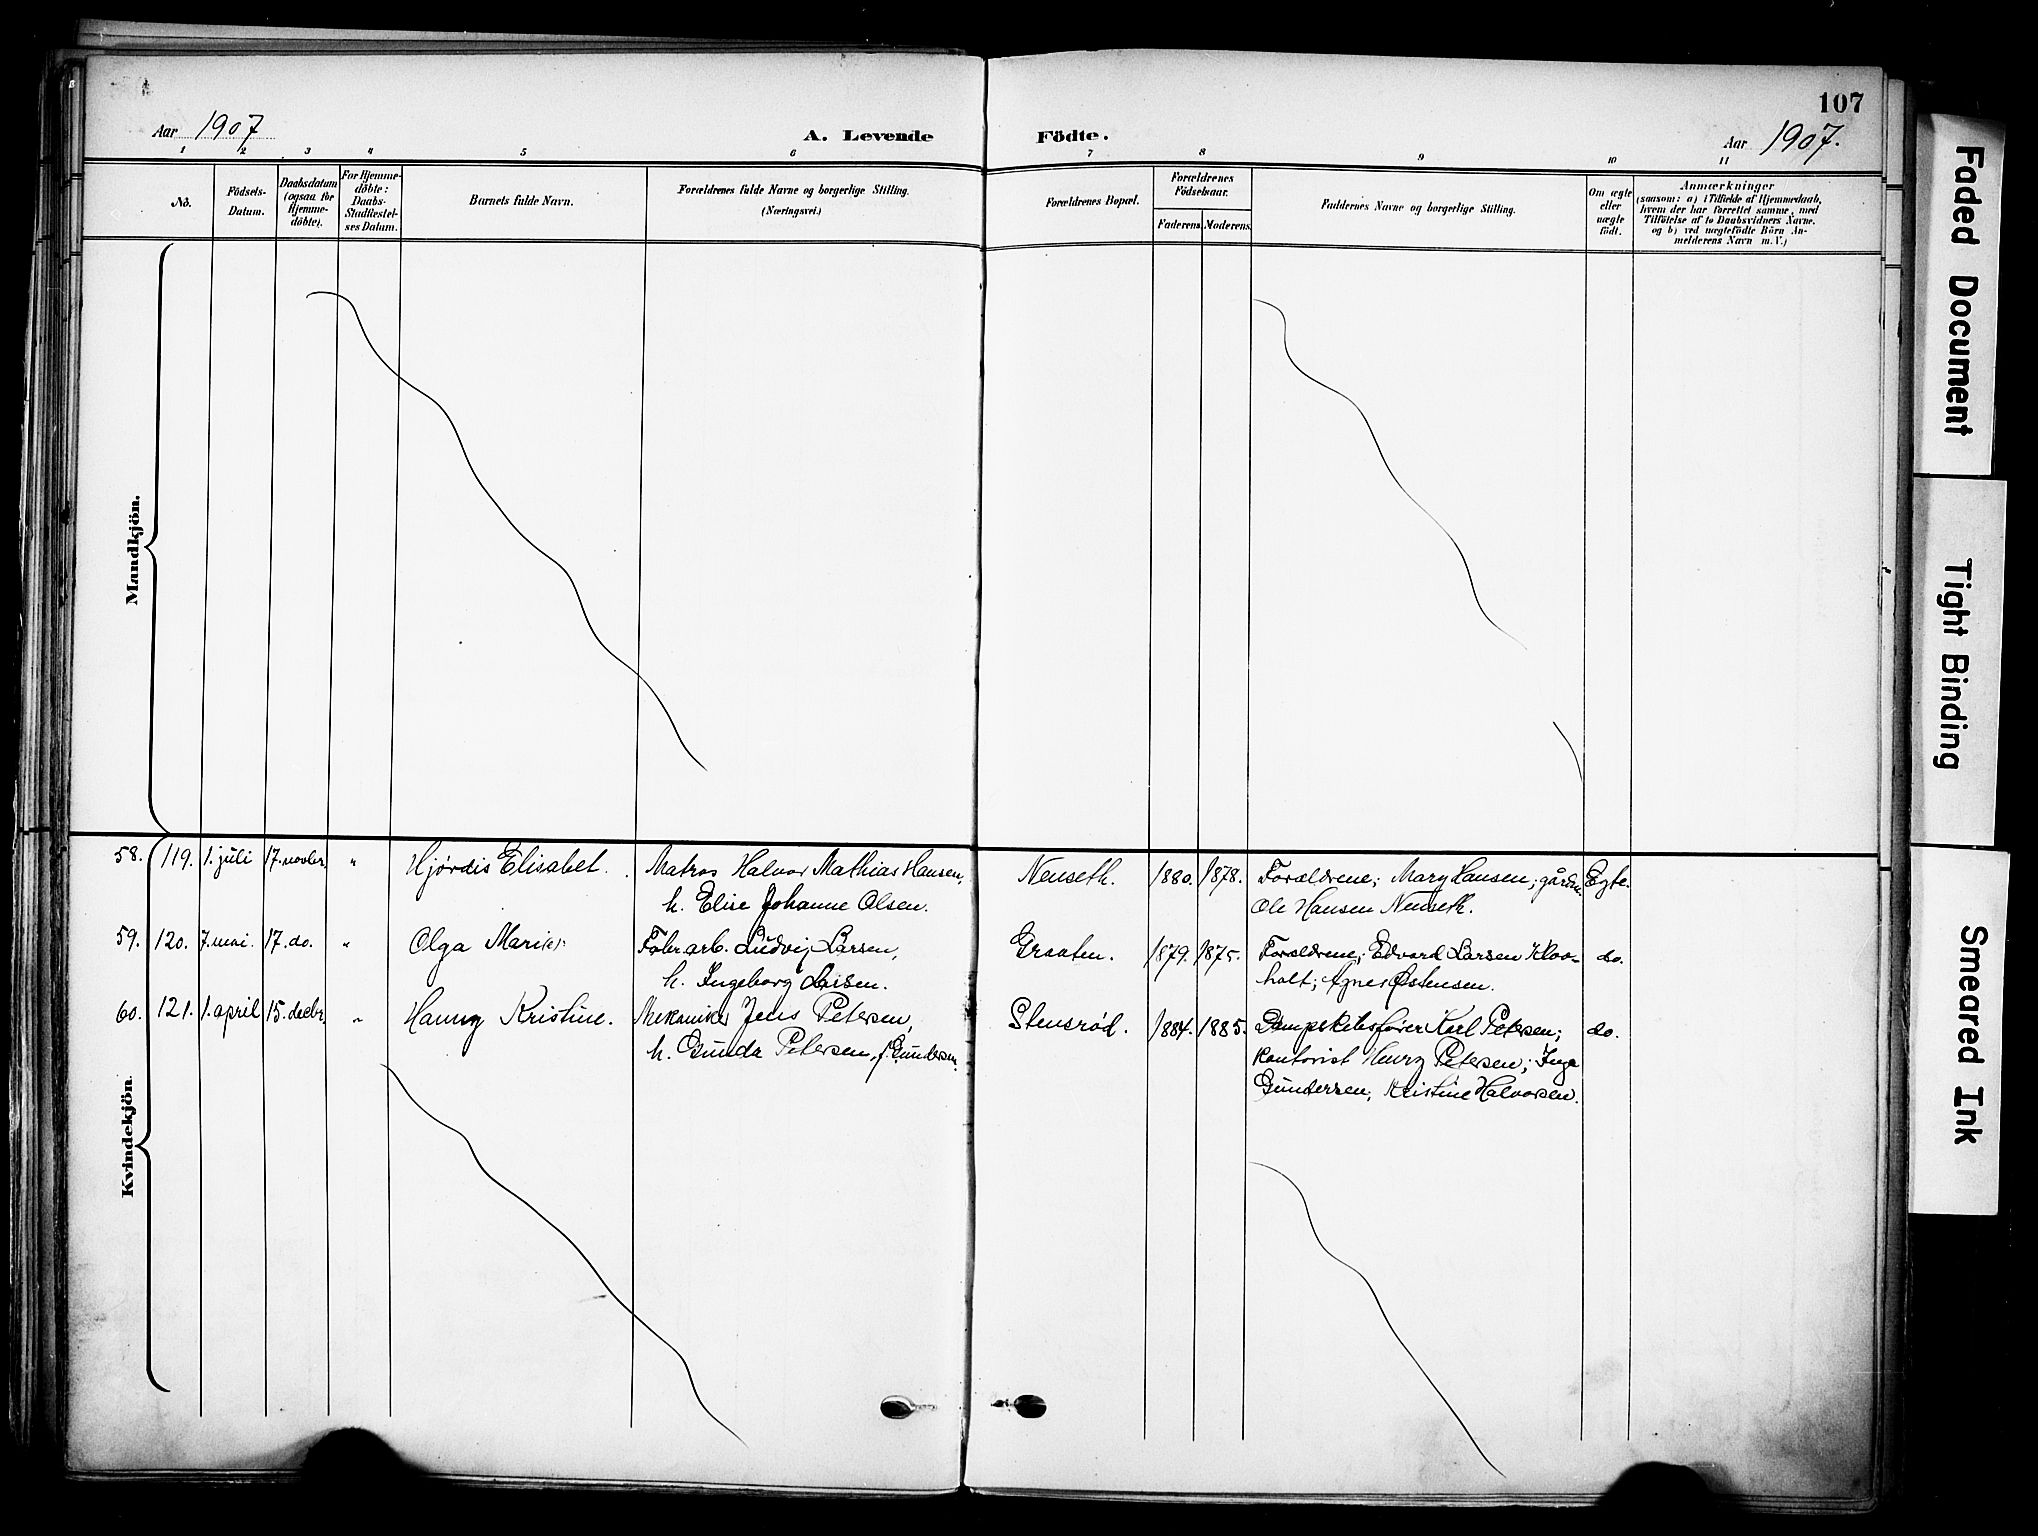 107
Aar 1907
A. Levende
Födte.
Aar 1907.
1 2 3 4 5 6 7 8 9 10 11
No.
Födsels-
Datum.
Daabsdatum
(ogsaa for
Hjemme-
döbte).
For Hjemme-
döbte:
Daabs-
Stadfæstel-
ses Datum.
Barnets fulde Navn.
Forældrenes fulde Navne og borgerlige Stilling.
(Næringsvei.)
Forældrenes Bopæl.
Forældrenes
Födselsaar.
Faderens.
Moderens.
Faddernes Navne og borgerlige Stilling.
Om ægte
eller
uægte
födt.
Anmærkninger
(saasom: a) i Tilfælde af Hjemmedaab,
hvem der har forrettet samme, med
Tilföielse af to Daabsvidners Navne.
og b) ved uægtefödte Börn An-
melderens Navn m. V.)
Mandkjön.
58. 119. 1. juli 17. novbr. " Hjördis Elisabet. Matros Halvor Mathias Hansen, Nenseth. 1880. 1878. Forældrene; Mary Hansen; gårdm. Egte.
h. Elise Johanne Olsen. Ole Hansen Nenseth.
59. 120. 7. mai. 17. do. " Olga Marie. Fabr.arb. Ludvig Larsen, Graaten. 1879. 1875. Forældrene; Edvard Larsen Klov- do.
h. Ingeborg Larsen. holt; Agnes Østensen.
60. 121. 1. april 15. decbr. " Hanny Kristine. Mekaniker Jens Petersen, Stensrød. 1884. 1885. Dampskibsfører Karl Petersen; do.
h. Gunda Petersen, f. Gundersen. kontorist Henry Petersen; Inga
Gundersen, Kristine Halvorsen.
Kvindekjön.
Faded Document
Tight Binding
Smeared Ink